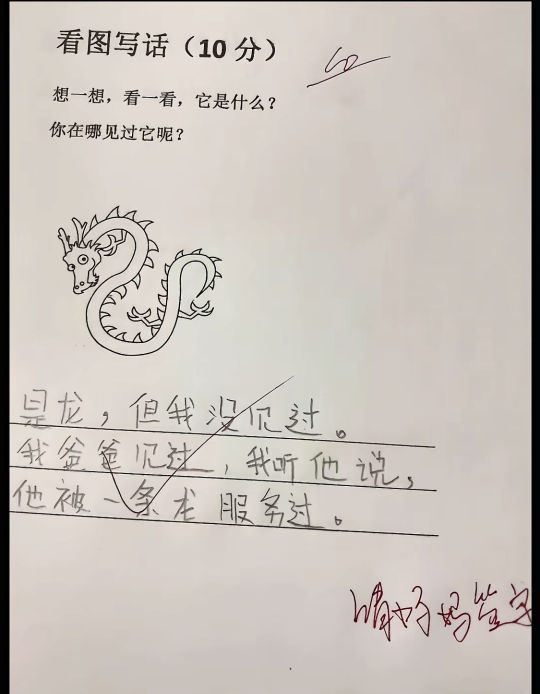 看图写话（10 分）
想一想，看一看，它是什么？
你在哪见过它呢？
是龙，但我没见过。
我爸爸见过，我听他说，
他被一条龙服务过。
请妈妈签字